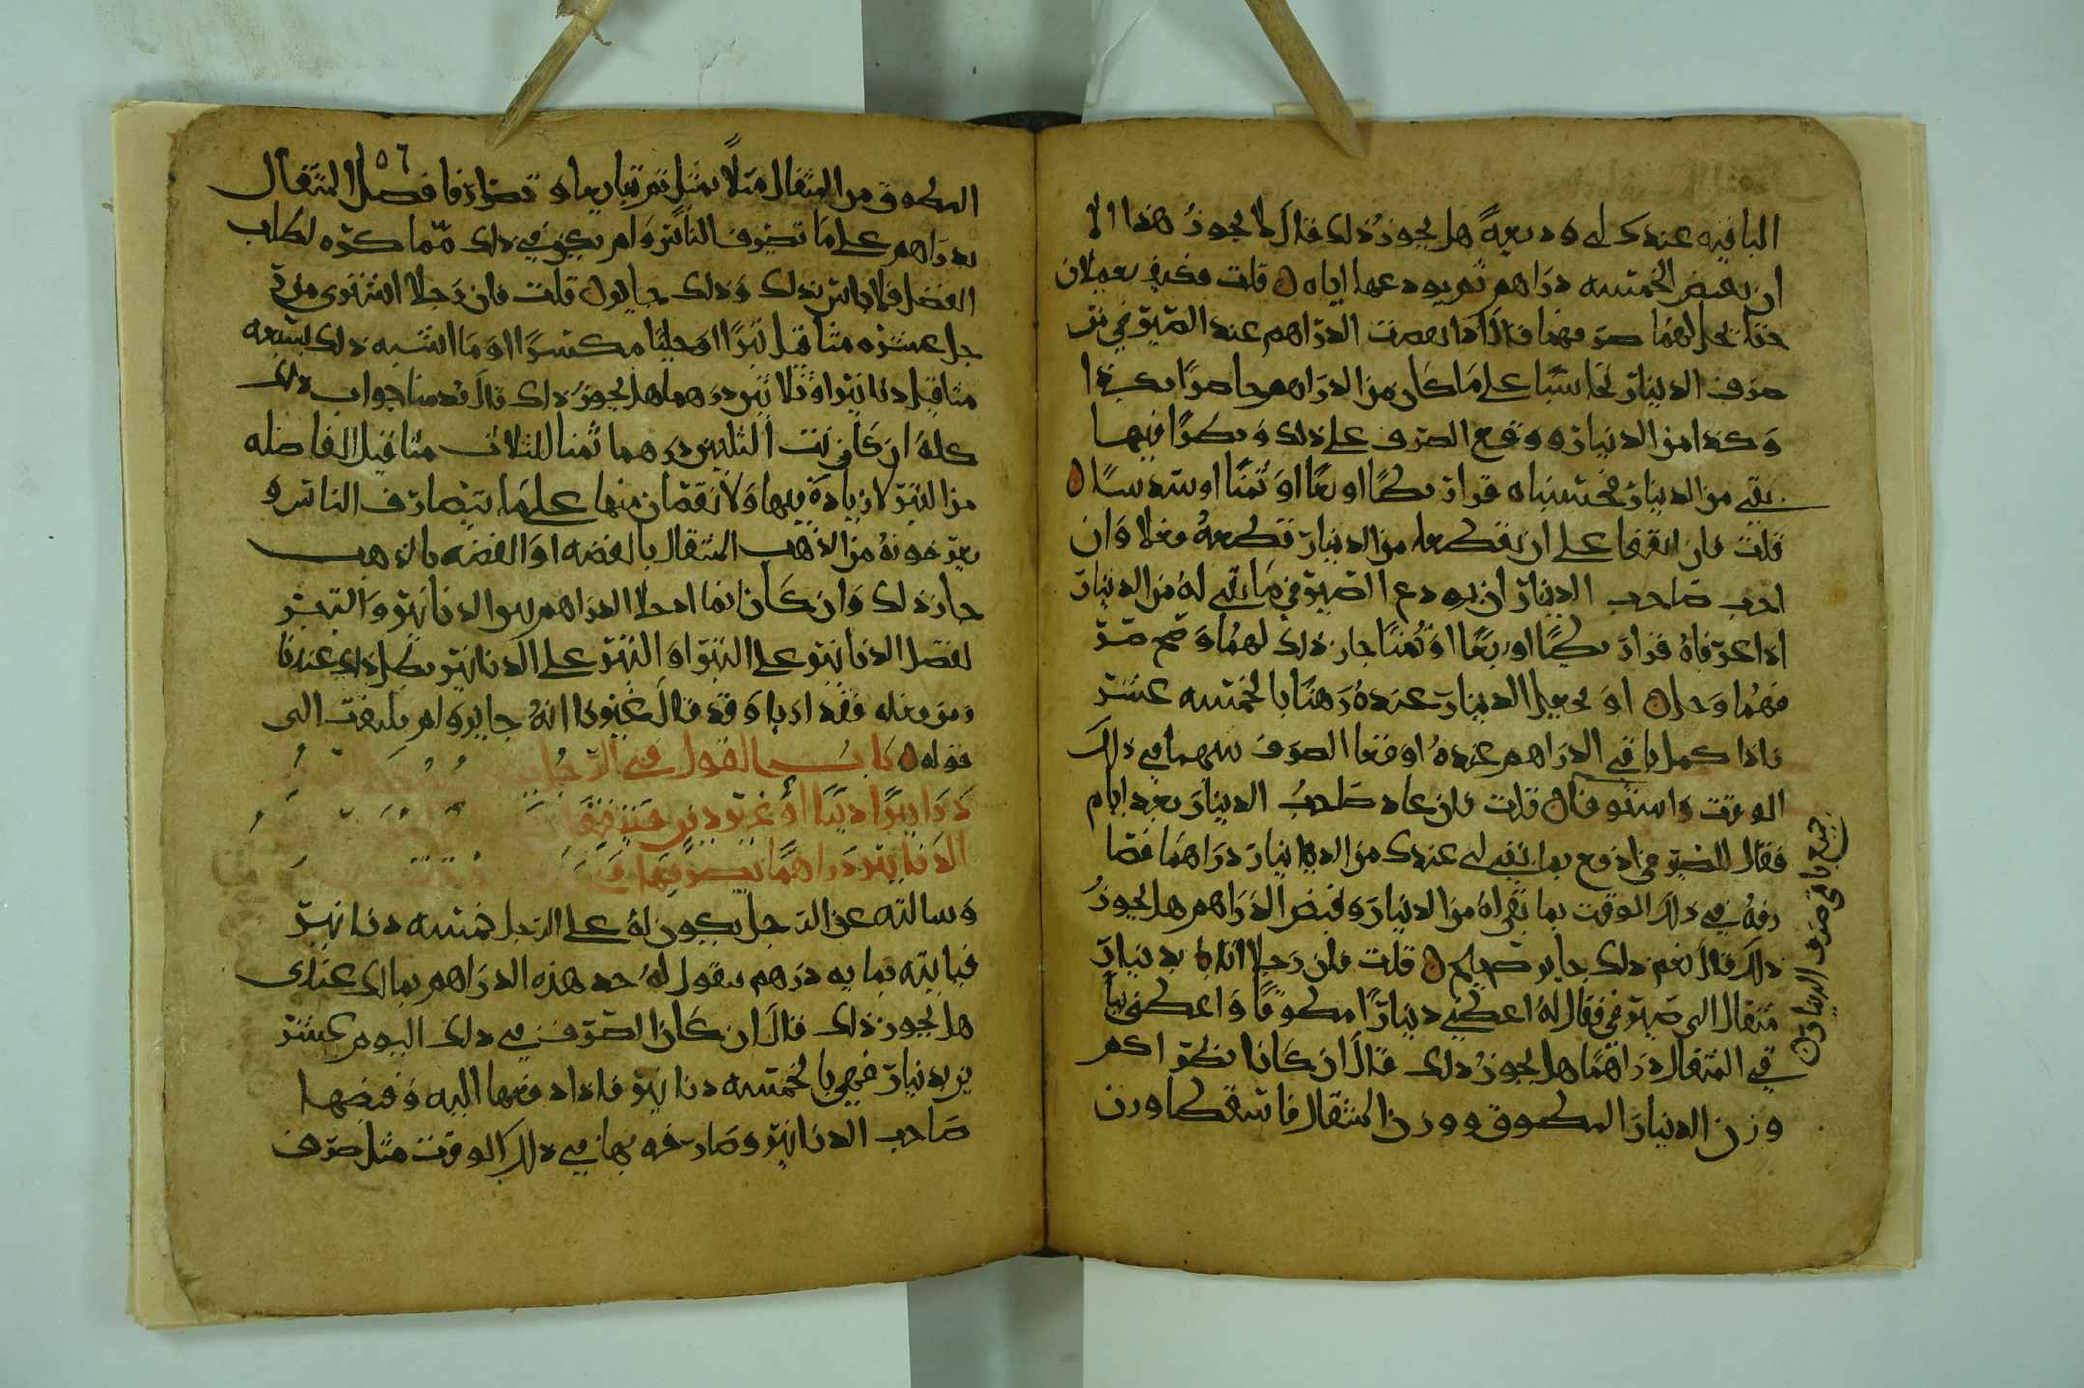 الباقيه عندك لي وديعةً هل يجوزُ ذلك قال لا يجوزُ هذا الا
ان يقبض الخمسه دراهم ثم يودعها اياه قلت فكيف يعملان
حتا يحل لهما صرفهما قال اذا نقصت الدراهم عند الصيرفي من
صرف الدينار تحاسبا على ما كان من الدراهم حاصرًا بكذا
وكذا من الدينار ووقع الصرف على ذلك ونظرا فيما
بقي من الدينار فحسباه قرارىطًا او ربعًا او ثمنًا او سدسًا
قلت فان اتفقا على ان يقطعا من الدينار قطعةً فعلا وان
احب صاحب الدينار ان يودع الصيرفي ما بقي له من الدينار
اذا عرفاه قرارىطًا او ربعًا او ثمنًا جاز ذلك لهما وصح صر
فهما وحل او يجعل الدينار عندهُ رهنا بالخمسه عشر
فاذا كمل باقي الدراهم عندهُ اوقعا الصرف بينهما في ذلك
الوقت واستوفا قلت فان عاد صاحبُ الدينار بعد ايام
فقال للصيرفي ادفع بما بقي لي عندك من الدينار دراهمًا فصا
رفهُ في ذلك الوقت بما بقي لهُ من الدينار وقبض الدراهم هل يجوزُ
ذلك قال نعم ذلك جايز صحيح قلت فان رجلا اتا بدينار
مثقال الى صيرفي فقال لهُ اعطني دينارًا مطوقًا واعطني بباُ
قي المثقال دراهمًا هل يجوزُ ذلك قال ان كانا نظرا كم
وزن الدينار المطوق ووزن المثقال فاسقطا وزن
جميع باقي صرف الدينار
٥٦
المطوق من المثقال مثلاً بمثل ثم تبايعا وتصارفا فضل المثقال
بدراهم على ما تصرف الناس ولم يكن في ذلك مما كره لطلب
الفضل فلا باس بذلك وذلك جايز قلت فان رجلا اشترى من ر
جل عشره مثاقيل تبرًا او حليًا مكسرًا او ما اشبه ذلك بسبعه
مثاقيل دنانير او ثلاثين درهما هل يجوز ذلك قال قد مضا جواب ذلك
كلهُ ان كانت الثلثين درهما ثمنا للثلاث مثاقيل الفاضله
من التبر لا زيادة فيها ولا نقصان منها على ما يتصارف الناس و
يعرفونهُ من الذهب المثقال بالفضه او الفضه بالذهب
جاز ذلك وان كانا انما ادخلا الدراهم بين الدنانير والتبر
لفضل الدنانير على التبر او التبر على الدنانير بطل ذلك عندنا
ومن فعله فقد اربا وقد قال غيرنا انهُ جايز ولم يلتفت الى
قوله باب القول في الرجل
دنانيرًا دينًا او غير دين
الدنانير دراهمًا يصرفها
وسالته عن الرجل يكون لهُ على الرجل خمسه دنانير
فياتيه بمايه درهم يقول لهُ خذ هذه الدراهم بمالك عندي
هل يجوز ذلك قال ان كان الصرف في ذلك اليوم عشر
ين بدينار فهي بالخمسه دنانير فاذا دفعها اليه وقبضها
صاحب الدنانير وصارفه بها في ذلك الوقت مثل صرف